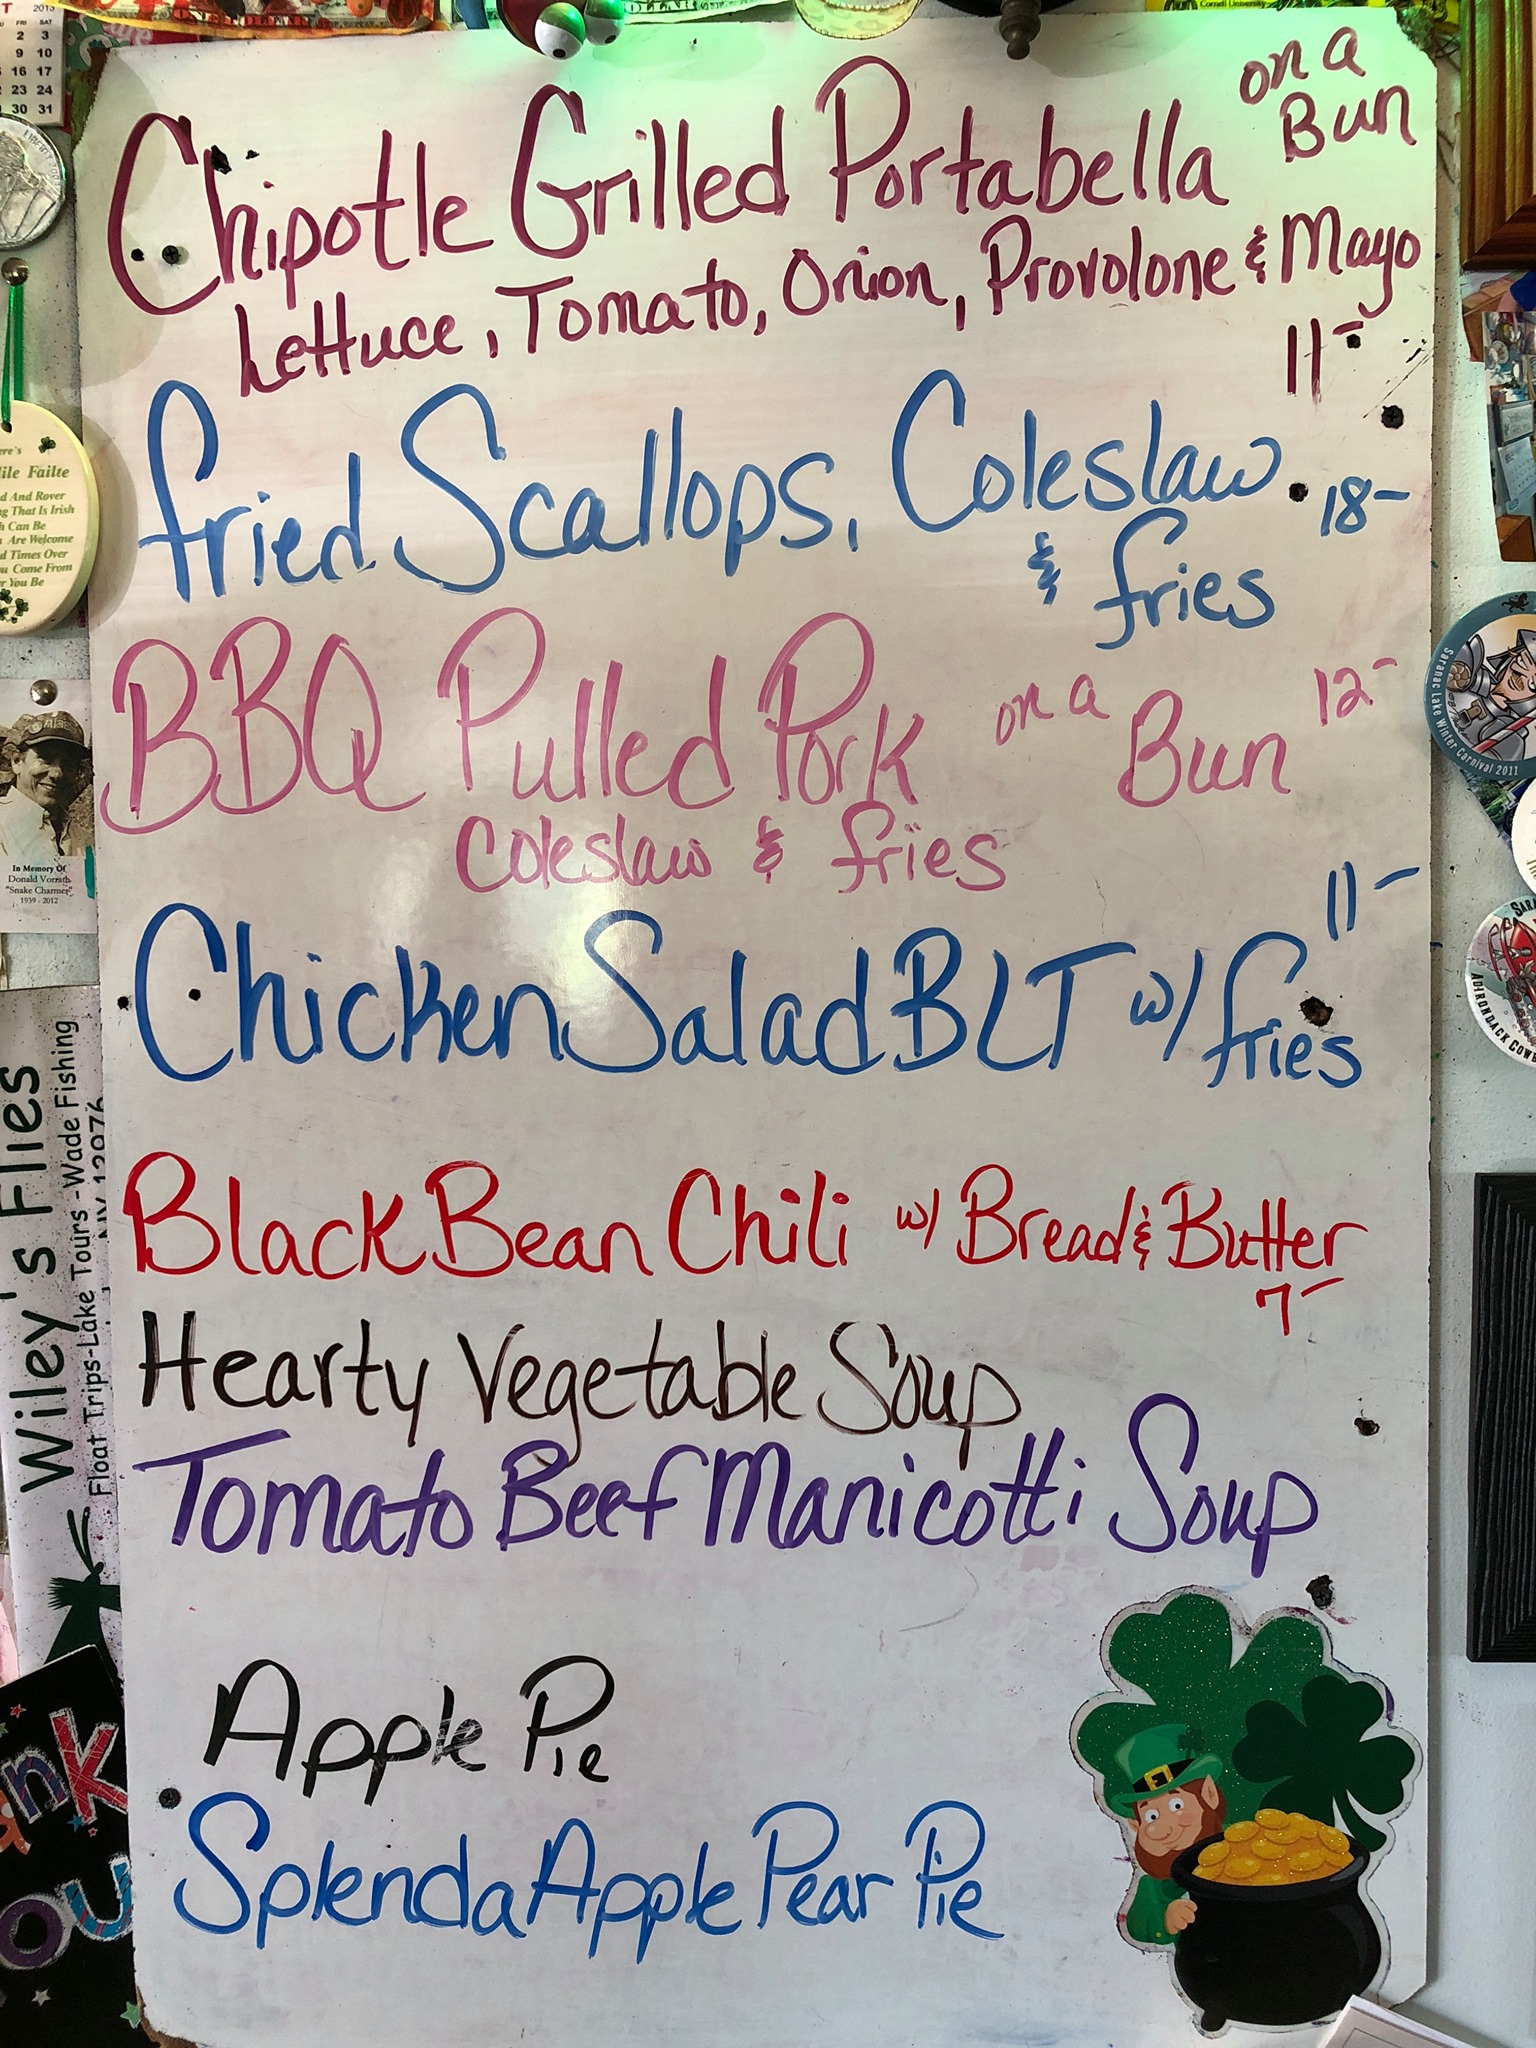 on a
Bun
Chipotle Grilled Portabella
Lettuce, Tomato, Onion, Provolone & Mayo
11-
fried Scallops, Coleslaw 18-
& fries
BBQ Pulled Pork on a Bun 12-
Coleslaw & fries
11-
Chicken Salad BLT w/ fries
Black Bean Chili w/ Bread & Butter
7-
Hearty Vegetable Soup
Tomato Beef Manicotti Soup
Apple Pie
Splenda Apple Pear Pie
2013
FRI
2 3
9 10
16 17
23 24
30 31
Cornell University
Failte
And Rover
That Is Irish
Can Be
Are Welcome
Times Over
Come From
You Be
In Memory Of
Donald Vorrath
"Snake Charmer"
1939 - 2012
Wiley's Flies
Float Trips-Lake Tours-Wade Fishing
Saranac Lake Winter Carnival 2011
ADIRONDACK